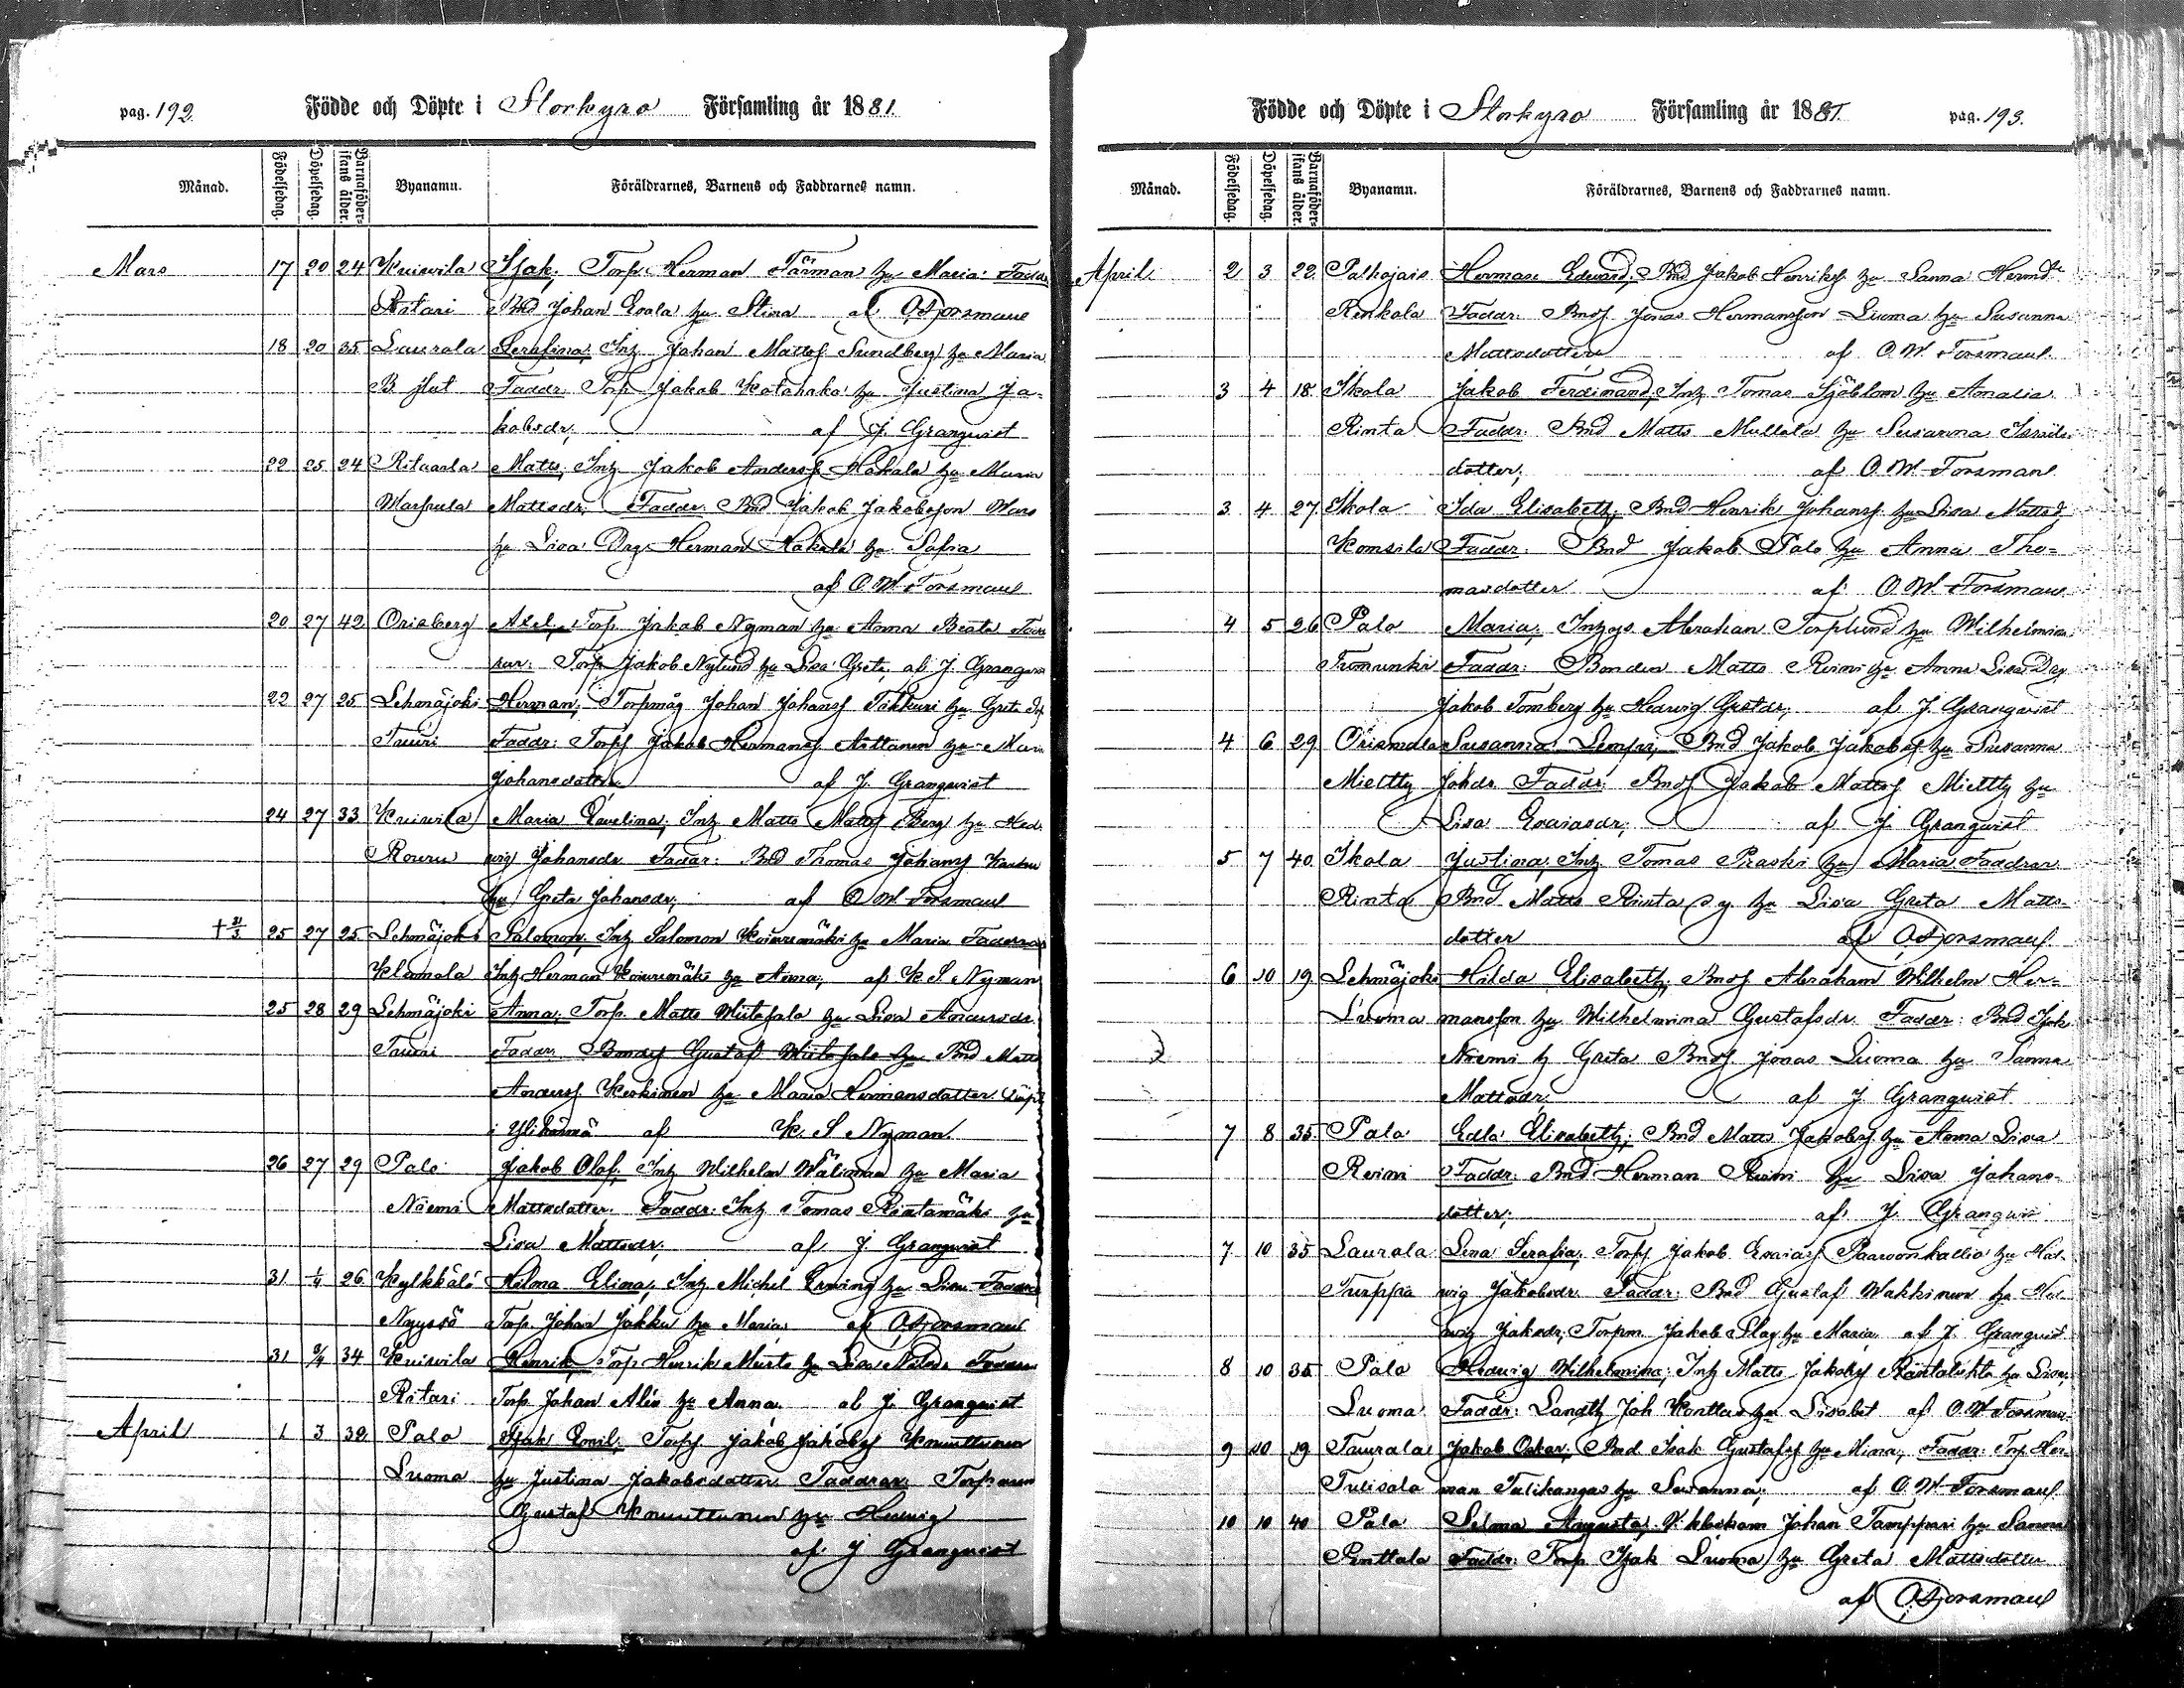 pag. 192.
Födde och Döpte i Storkyro Församling år 1881.
Månad. Födelsedag. Döpelsedag. Barnaföderskans ålder. Byanamn. Föräldrarnes, Barnens och Faddrarnes namn.
Mars 17 20 24 Kuivila Isak, Torp. Herman Färman hu Maria: Faddr
Ritari Bnd Johan Evala hu Stina af OWForsman
18 20 35 Laurola Serafina, Inh Johan Mattsf Sundberg hu Maria
Faddr. Torp Jakob Katahako hu Justina Ja-
kobsdr, af J. Granqvist
22 25 24 Ritaala Matts, Inh Jakob Andersf Hakala hu Maria
Mattsdr. Faddr. Bnd Jakob Jakobsson
hu Lisa Drg. Herman Hakala hu Sofia
af O. W. Forsman
20 27 42 Orisberg Axel, Torp. Jakob Nyman hu Anna Beata
Torp Jakob Nylund hu Lisa Greta, af J. Granqvist
22 27 25 Lehmäjoki Herman, Torpmåg Johan Johansf hu Greta
Tuuri Faddr: Torp Jakob Hermansf hu Maria
Johansdotter af J. Granqvist
24 27 33 Kuivila Maria Evelina, Inh Matts Mattsf Berg hu Hed-
Rouru vig Johansdr Faddr: Bnd Thomas Johansf
hu Greta Johansdr, af O W Forsman
+ 31/3 25 27 25 Lehmäjoki Salomon, Inh Salomon Koivumäki hu Maria Faddrar
Klemola Inh Herman Koivumäki hu Anna, af K. S Nyman
25 28 29 Lehmäjoki Anna, Torp. Matts hu Lisa Andersdr.
Tuuri Faddr. Bondes Gustaf hu Bnd Matts
Andersf Keskinen hu Maria Hermansdotter
i Ylihärmä af K. S Nyman.
26 27 29 Palo Jakob Olof, Inh Wilhelm Wälimaa hu Maria
Niemi Mattsdotter. Faddr. Inh Tomas Rintamäki hu
Lisa Mattsdr, af J Granqvist
31 1/4 26 Kylkkälä Hilma Elina, Inh Michel hu Lisa Faddr
Nyyssö Torp. Johan Jakku hu Maria, af OWForsman
31 3/4 34 Kuivila Henrik, Torp Henrik hu Lisa Faddr
Ritari Torp Johan Alén hu Anna af J. Granqvist
April 1 3 39 Palo Isak Emil, Torp Jakob Jakobsf Knuuttunen
Luoma hu Justina Jakobsdotter Faddrar: Torparen
Gustaf Knuuttunen hu Hedvig
af J Granqvist
Födde och Döpte i Storkyro Församling år 1881. pag. 193.
Månad. Födelsedag. Döpelsedag. Barnaföderskans ålder. Byanamn. Föräldrarnes, Barnens och Faddrarnes namn.
April 2 3 22 Palhojais Herman Edvard, Bnd Jakob Henriksf hu Sanna Hermdr
Renkola Faddr. Bnds. Jonas Hermansson Luoma hu Susanna
Mattsdotter af O. W. Forsman.
3 4 18 Ikola Jakob Ferdinand, Inh Tomas Sjöblom hu Amalia
Rinta Faddr. Bnd Matts Mullola hu Susanna Israels-
dotter, af O. W. Forsman
3 4 27 Ikola Ida Elisabeth, Bnd Henrik Johansf hu Lisa Mattsd
Komsila Faddr. Bnd Jakob Palo hu Anna Tho-
masdotter af O. W. Forsman
4 5 26 Palo Maria, Abraham Torplund hu Wilhelmina
Faddr: Bonden Matts Reini hu Anna Lisa Drg
Jakob Tomberg hu Hedvig Gustdr, af J. Granqvist
4 6 29 Orismala Susanna Lempi, Bnd Jakob Jakobsf hu Susanna
Mieltty Johdr. Faddr: Bnds. Jakob Mattsf Mieltty hu
Lisa Esaiasdr, af J. Granqvist
5 7 40 Ikola Justina, Inh Tomas hu Maria Faddrar
Rinta Bnd Matts Rinta hu Lisa Greta Matts-
dotter af OWForsman.
6 10 19 Lehmäjoki Hilda Elisabeth, Bnds. Abraham Wilhelm Her-
Luoma mansson hu Wilhelmina Gustafsdr. Faddr: Bnd Isak
Niemi h Greta Bnds. Jonas Luoma hu Sanna
Mattsdr af J Granqvist
7 8 35 Palo Edla Elisabeth, Bnd Matts Jakobsf hu Anna Lisa
Reini Faddr: Bnd Herman Reini hu Lisa Johans-
dotter, af J. Granqvi
7 10 35 Laurola Lina Serafia, Torp Jakob Esaiasf Paavonkallio hu Hed-
Turppa vig Jakobsdr. Faddr: Bnd Gustaf Wakkinen hu Hed-
vig Jaksdr, Torpm. Jakob hu Maria af J. Granqvist
8 10 35 Palo Hedvig Wilhelmina, Inh Matts Jakobsf hu Lisa,
Luoma Faddr: Joh Konttas hu Lisabet af O. W Forsman
9 10 19 Taurala Jakob Oskar, Bnd Isak Gustafsf hu Mina, Faddr: Torp. Her-
Tulisalo man Tulikangas hu Susanna, af O. W. Forsman.
10 10 40 Palo Selma Augusta, Johan Tamppari hu Sanna
Penttala Faddr. Torp Isak Luoma hu Greta Mattsdotter
af OWForsman